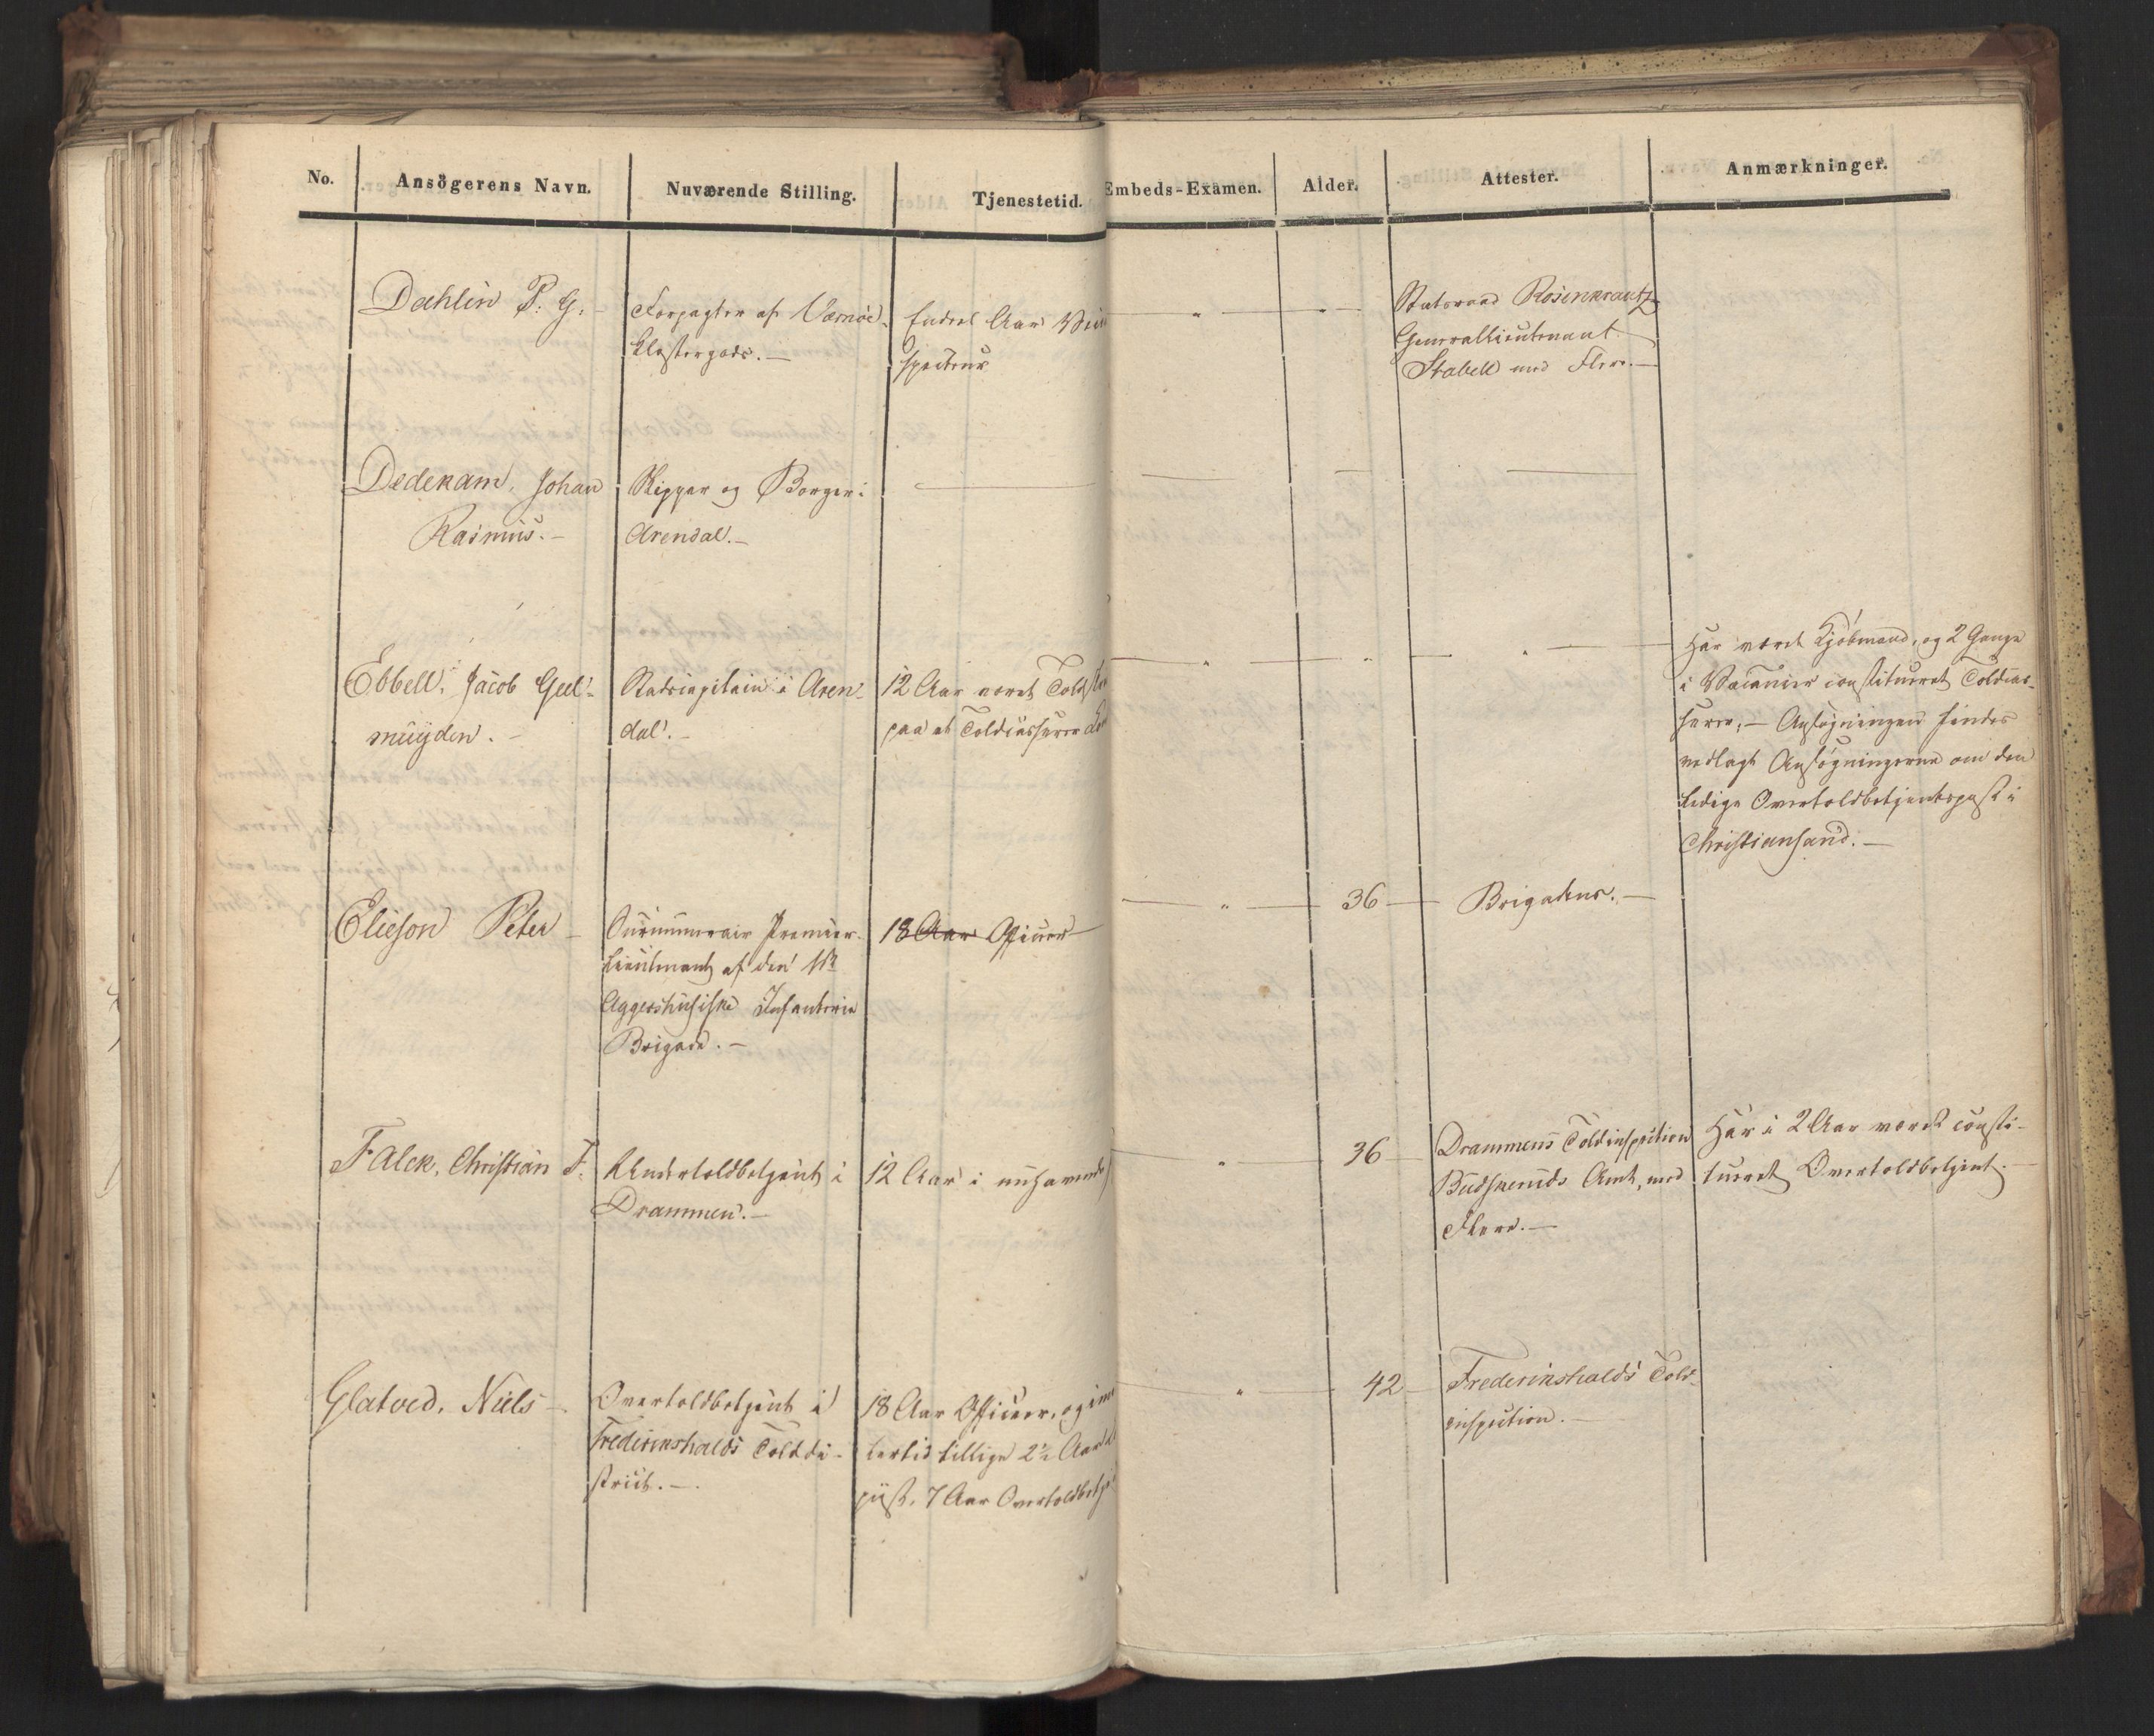 No. Ansögerens Navn. Nuværende Stilling. Tjenestetid. Embeds-Examen. Alder. Attester. Anmærkninger.
Dahlin P. G. –
Forpagter af Værnöe
Klostergods. –
Endeel Aar
specteur
" "
Statsraad Rosenkrantz
Generallieutenant
Stabell med Flere. –
Dedekam, Johan
Rasmus. –
Skipper og Borger i
Arendal. –
Ebbell, Jacob Geel-
muyden. –
Stadscapitain i Aren-
dal. –
12 Aar været Told
paa et Toldcasserer
" " "
Har været Kjöbmand, og 2 Gange
i Vacancer constitueret Toldcas-
serer, – Ansögningen findes
vedlagt Ansögningerne om den
ledige Overtoldbetjentspost i
Christiansand. –
Elieson Peter –
Premier-
lieutenant af den
Aggershusiske Infanterie
Brigade. –
18 Aar Officer
"
36
Brigadens. –
Falck, Christian F.
Undertoldbetjent i
Drammen. –
12 Aar i nuhavende
"
36
Drammens Toldinspection
Budskeruds Amt, med
Flere. –
Har i 2 Aar været consti-
tueret Overtoldbetjent. –
Glatved, Niels –
Overtoldbetjent i
Frederikshalds Tolddi-
strict. –
18 Aar Officeer, og imid
lertid tillige 2½ Aar
7 Aar Overtoldbetje
"
42
Frederikshalds Told-
inspection. –